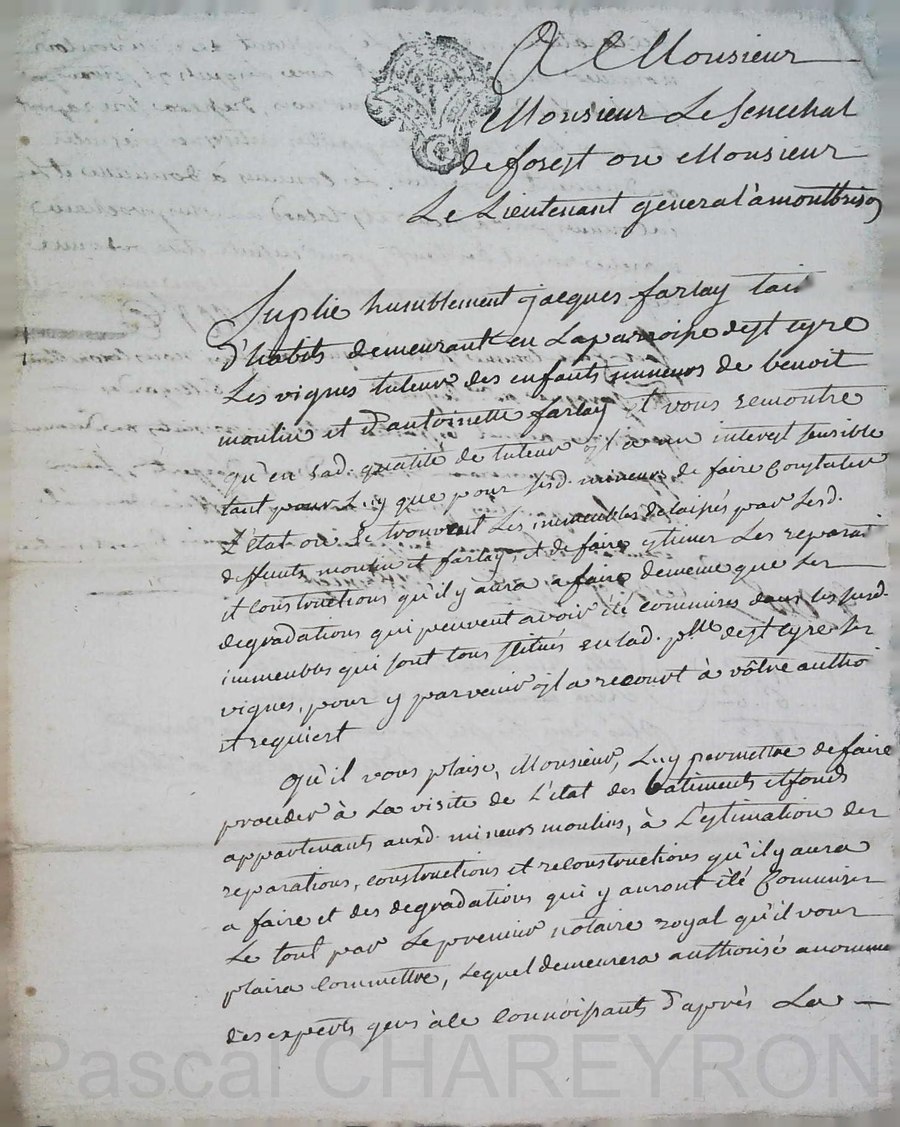 A Monsieur
Monsieur Le Senechal
de forest ou Monsieur
Le Lieutenant general à montbrison
Suplie humblement jacques farlay tail
d'habits demeurant en La parroisse de st cyre
Les vignes tuteur des enfants mineurs de benoit
moulin et d'antoinette farlay et vous remontre
qu'en sad. qualité de tuteur il a un interest sensible
tant pour Luy que pour lesd. mineurs de faire Constater
L'état ou se trouvent Les immeubles delaissés par Lesd.
deffunts moulin et farlay, et de faire estimer Les reparati
et constructions qu'il y aura a faire de meme que Les
degradations qui peuvent avoir été commises dans les susd.
immeubles qui sont tous scitués en lad. psse de st cyre les
vignes, pour y parvenir il a recourt à vôtre authori
et requiert
Qu'il vous plaise, Monsieur, Luy permettre de faire
proceder à La visite de L'état des bâtiments et fonds
appartenants auxd. mineurs moulins, à L'estimation des
reparations, constructions et reconstructions qu'il y aura
a faire et des degradations qui y auront été Commises
Le tout par Le premier notaire royal qu'il vous
plaira Commettre, Lequel demeurera authorisé a nomme
des experts gens à ce Connoissants d'après La
Pascal CHAREYRON